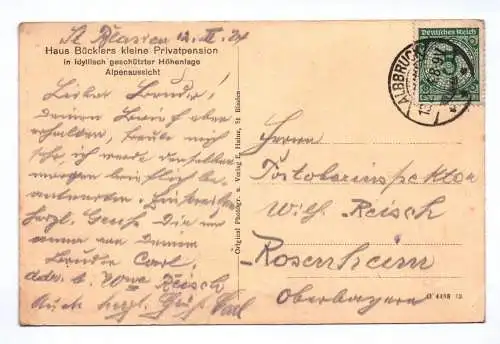 St Blasien 12. II. 24
Haus Bücklers kleine Privatpension
in idyllisch geschützter Höhenlage
Alpenaussicht
Lieber Bruder!
Deinen Brief eben
erhalten, freute mich
sehr, ich werde denselben
morgen brieflich be-
antworten. Einstweilen
herzl. Grüße Dir u.
Anna von Deinem
Bruder Carl,
Reisch
Auch herzl. Gruß Carl
Original Photogr. u. Verlag E. Hahne, St Blasien
ALBBRUCK
Deutsches Reich
5
Herrn
Postoberinspektor
Wilh. Reisch
Rosenheim
Oberbayern